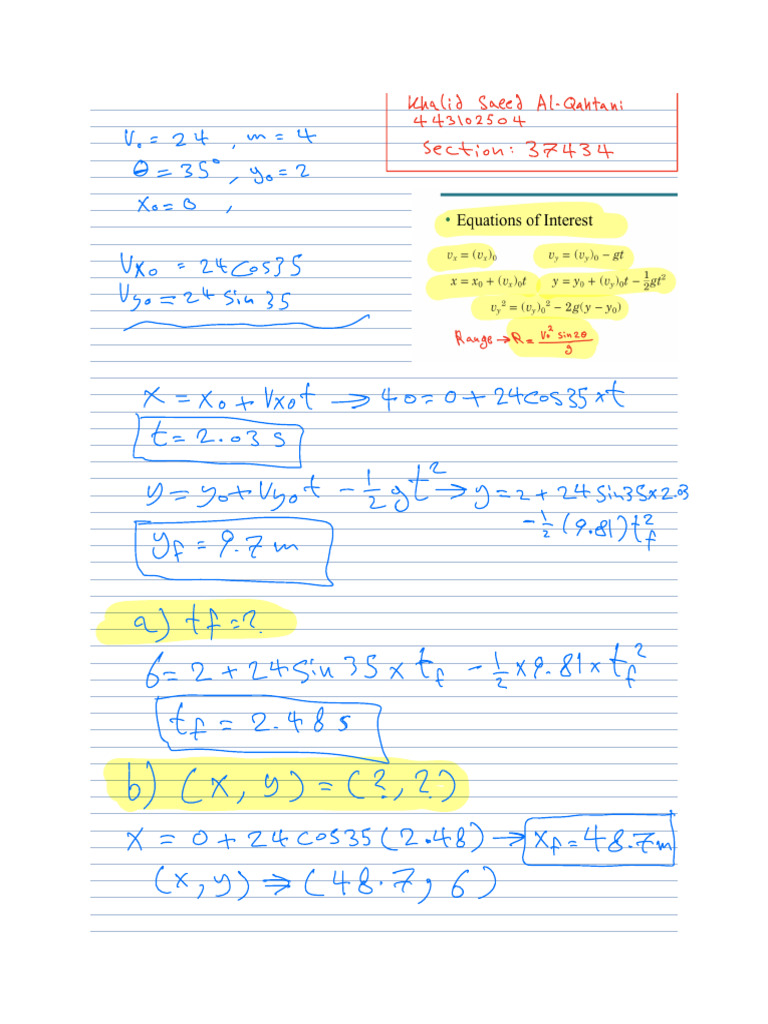 Khalid Saeed Al-Qahtani
443102504
Section: 37434
V₀ = 24 , m = 4
θ = 35° , y₀ = 2
x₀ = 0 ,
Vx₀ = 24 cos35
Vy₀ = 24 sin 35
• Equations of Interest
vₓ = (vₓ)₀ v_y = (v_y)₀ − gt
x = x₀ + (vₓ)₀t y = y₀ + (v_y)₀t − ½gt²
v_y² = (v_y)₀² − 2g(y − y₀)
Range → R = V₀² sin2θ / g
x = x₀ + Vx₀t → 40 = 0 + 24cos35 × t
t = 2.03 s
y = y₀ + Vy₀t − ½ gt² → y = 2 + 24 sin35 × 2.03
− ½ (9.81) t_f²
y_f = 9.7 m
a) t_f = ?
6 = 2 + 24 sin 35 × t_f − ½ × 9.81 × t_f²
t_f = 2.48 s
b) (x, y) = (?, ?)
x = 0 + 24 cos35 (2.48) → x_f = 48.7m
(x, y) ⇒ (48.7, 6)